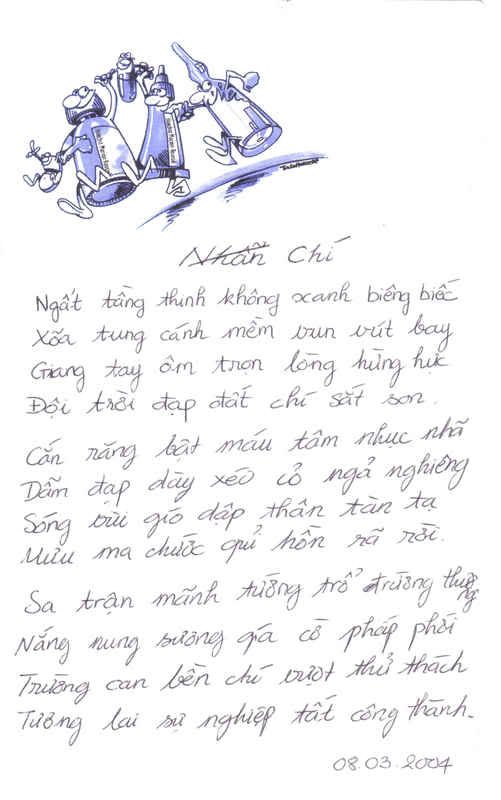 Nhẫn Chí
Ngất tầng thinh không xanh biêng biếc
Xõa tung cánh mềm vun vút bay
Giang tay ôm trọn lòng hừng hực
Đội trời đạp đất chí sắt son.
Cắn răng bật máu tâm nhục nhã
Dẫm đạp dày xéo cỏ ngả nghiêng
Sóng vùi gió dập thân tàn tạ
Mưu ma chước quỉ hồn rã rời.
Sa trận mãnh tướng trổ trường thương
Nắng nung sương giá cờ phấp phới
Trường can bền chí vượt thử thách
Tương lai sự nghiệp tất công thành.
08.03.2004